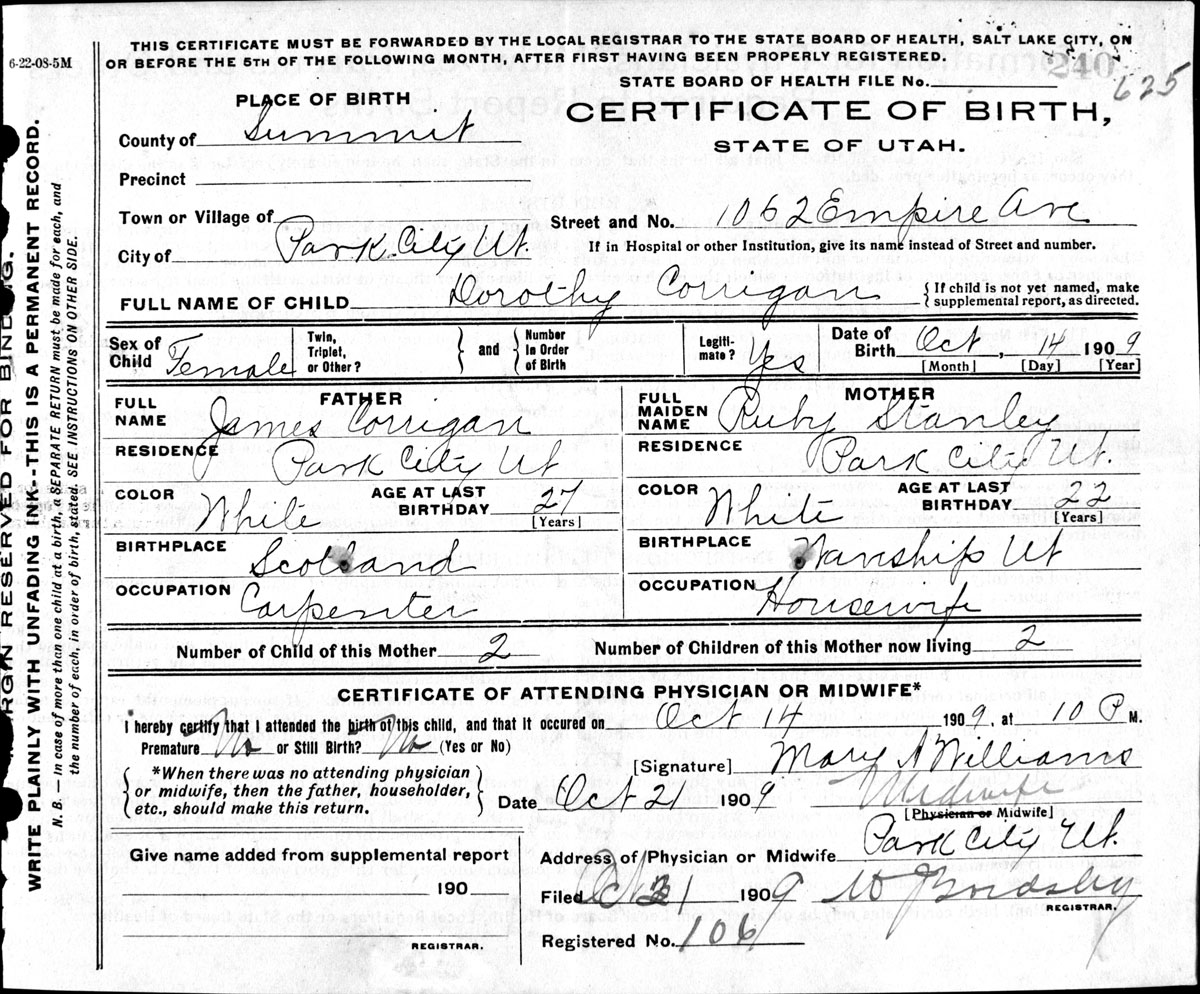 6-22-08-5M
THIS CERTIFICATE MUST BE FORWARDED BY THE LOCAL REGISTRAR TO THE STATE BOARD OF HEALTH, SALT LAKE CITY, ON
OR BEFORE THE 5TH OF THE FOLLOWING MONTH, AFTER FIRST HAVING BEEN PROPERLY REGISTERED.
240
625
STATE BOARD OF HEALTH FILE No.
PLACE OF BIRTH
CERTIFICATE OF BIRTH,
STATE OF UTAH.
County of Summit
Precinct
Town or Village of
Street and No. 1062 Empire Ave
City of Park City Ut.
If in Hospital or other Institution, give its name instead of Street and number.
FULL NAME OF CHILD Dorothy Corrigan
{ If child is not yet named, make
supplemental report, as directed.
Sex of Child Female
Twin, Triplet, or Other? } and { Number In Order of Birth
Legiti-mate? Yes
Date of Birth Oct, 14 1909
[Month] [Day] [Year]
FATHER
FULL NAME James Corrigan
RESIDENCE Park City Ut
COLOR White AGE AT LAST BIRTHDAY 27 [Years]
BIRTHPLACE Scotland
OCCUPATION Carpenter
MOTHER
FULL MAIDEN NAME Ruby Stanley
RESIDENCE Park City Ut.
COLOR White AGE AT LAST BIRTHDAY 22 [Years]
BIRTHPLACE Wanship Ut
OCCUPATION Housewife
Number of Child of this Mother 2 Number of Children of this Mother now living 2
CERTIFICATE OF ATTENDING PHYSICIAN OR MIDWIFE*
I hereby certify that I attended the birth of this child, and that it occured on Oct 14 1909, at 10 P M.
Premature No or Still Birth? No (Yes or No)
[Signature] Mary A Williams
{ *When there was no attending physician
or midwife, then the father, householder,
etc., should make this return. }
Date Oct 21 1909 Midwife
[Physician or Midwife]
Give name added from supplemental report
190
REGISTRAR.
Address of Physician or Midwife Park City Ut.
Filed Oct 21 1909
REGISTRAR.
Registered No. 106
MARGIN RESERVED FOR BINDING.
WRITE PLAINLY WITH UNFADING INK--THIS IS A PERMANENT RECORD.
N. B. — In case of more than one child at a birth, a SEPARATE RETURN must be made for each, and
the number of each, in order of birth, stated. SEE INSTRUCTIONS ON OTHER SIDE.